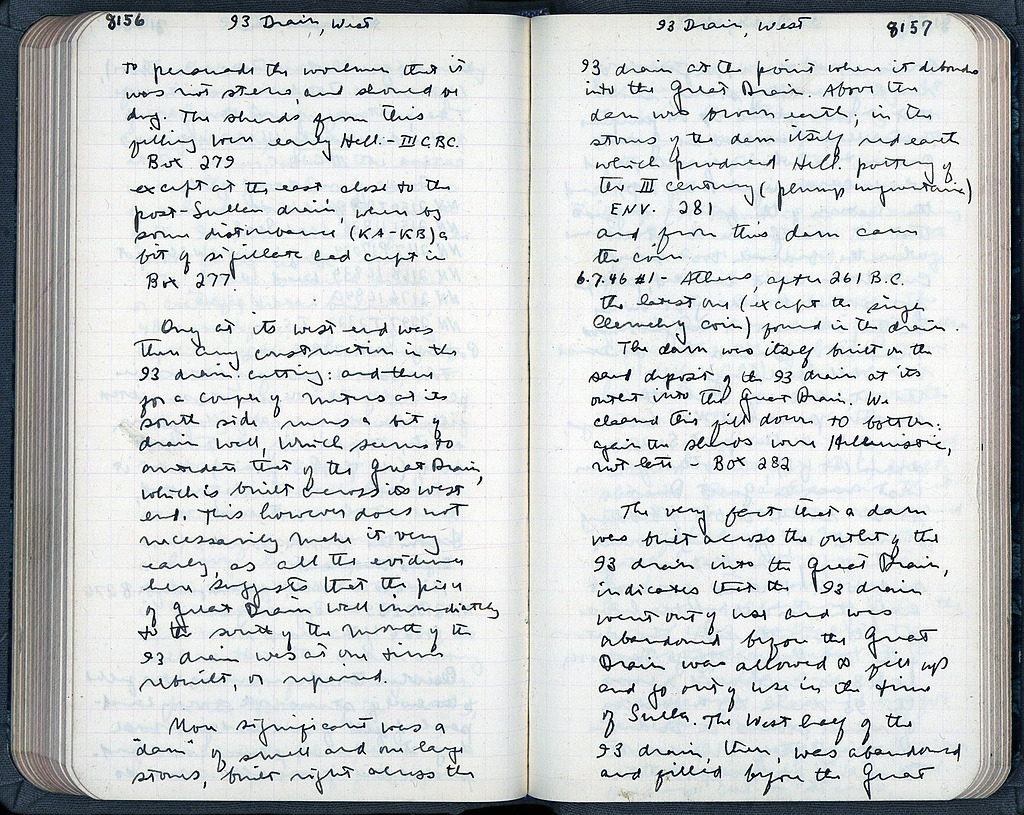 8156
93 Drain, West
to persuade the workmen that it
was not stereo, and should be
dug. The sherds from this
filling were early Hell. - III C BC.
Box 279
except at the east close to the
post-Sullan drain, where by
some disturbance (KA-KB) a
bit of sigillata had crept in
Box 277
Only at its west end was
there any construction in the
93 drain cutting: and there
for a couple of meters at its
south side runs a bit of
drain wall, which seems to
antedate that of the Great Drain,
which is built across its west
end. This however does not
necessarily make it very
early, as all the evidence
here suggests that the piece
of Great Drain wall immediately
to the south of the mouth of the
93 drain was at one time
rebuilt, or repaired.
More significant was a
"dam" of small and one large
stones, built right across the
93 Drain, West
8157
93 drain at the point where it debouches
into the Great Drain. Above the
dam was brown earth; in the
stones of the dam itself red earth
which produced Hell. pottery of
the III century (plump unguentaria)
ENV. 281
and from this dam came
the coin
6.7.46 #1 - Athens, after 261 B.C.
the latest one (except the single
Cleruchy coin) found in the drain.
The dam was itself built on the
sand deposit of the 93 drain at its
outlet into the Great Drain. We
cleaned this fill down to bottom:
again the sherds were Hellenistic,
not late - Box 282
The very fact that a dam
was built across the outlet of the
93 drain into the Great Drain,
indicates that the 93 drain
went out of use and was
abandoned before the Great
Drain was allowed to fill up
and go out of use in the time
of Sulla. The West half of the
93 drain, then, was abandoned
and filled before the Great